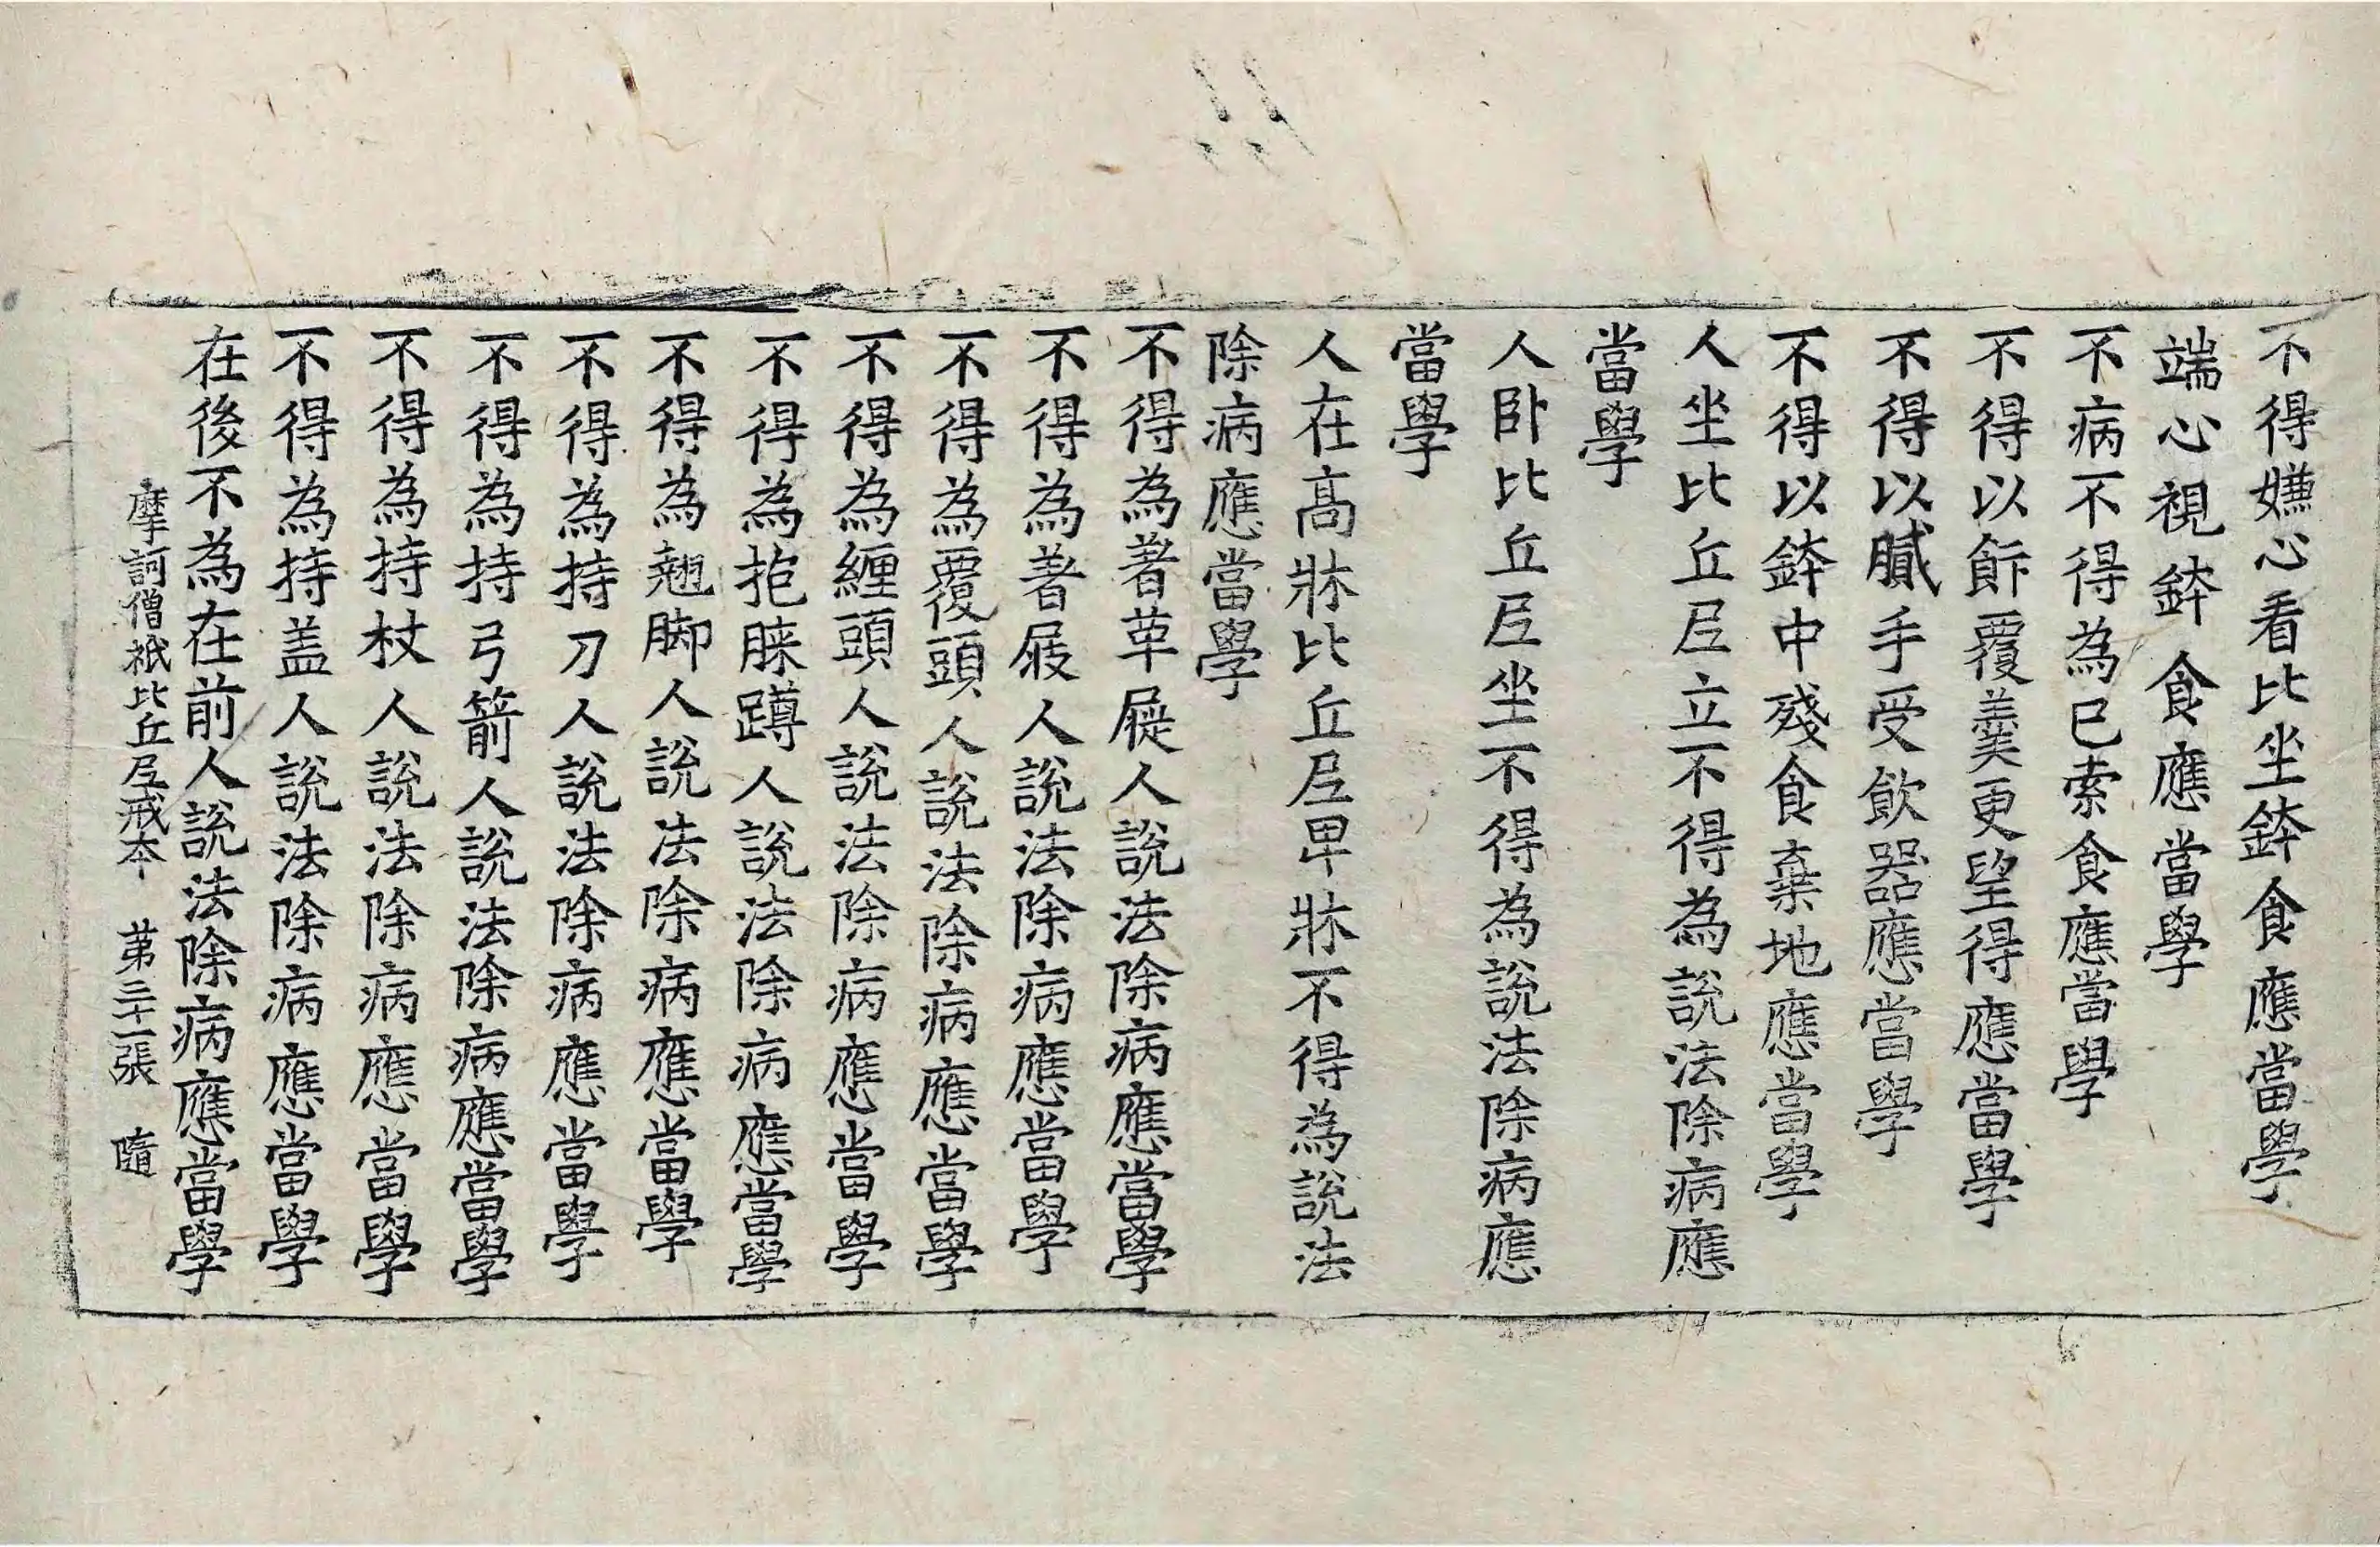 不得嫌心看比坐鉢食應當學
端心視鉢食應當學
不病不得為己索食應當學
不得以飰覆羹更望得應當學
不得以膩手受飲器應當學
不得以鉢中殘食棄地應當學
人坐比丘尼立不得為說法除病應
當學
人卧比丘尼坐不得為說法除病應
當學
人在高牀比丘尼卑牀不得為說法
除病應當學
不得為著革屣人說法除病應當學
不得為著屐人說法除病應當學
不得為覆頭人說法除病應當學
不得為纏頭人說法除病應當學
不得為抱膝蹲人說法除病應當學
不得為翹脚人說法除病應當學
不得為持刀人說法除病應當學
不得為持弓箭人說法除病應當學
不得為持杖人說法除病應當學
不得為持盖人說法除病應當學
在後不為在前人說法除病應當學
摩訶僧祇比丘尼戒本 第三十一張 隨